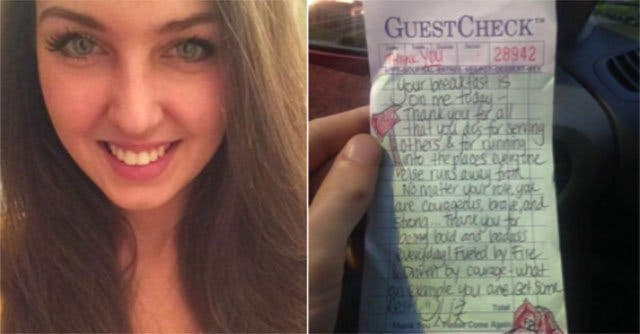 GUESTCHECK™
Thank You 28942
Your breakfast is
on me today -
Thank you for all
that you do; for serving
others & for running
into the places everyone
else runs away from.
No matter your role, you
are courageous, brave, and
strong. Thank you for
being bold and badass
everyday! Fueled by Fire
& Driven by courage - what
an example you are. Get some
Rest
Total
Thank You - Please Come Again